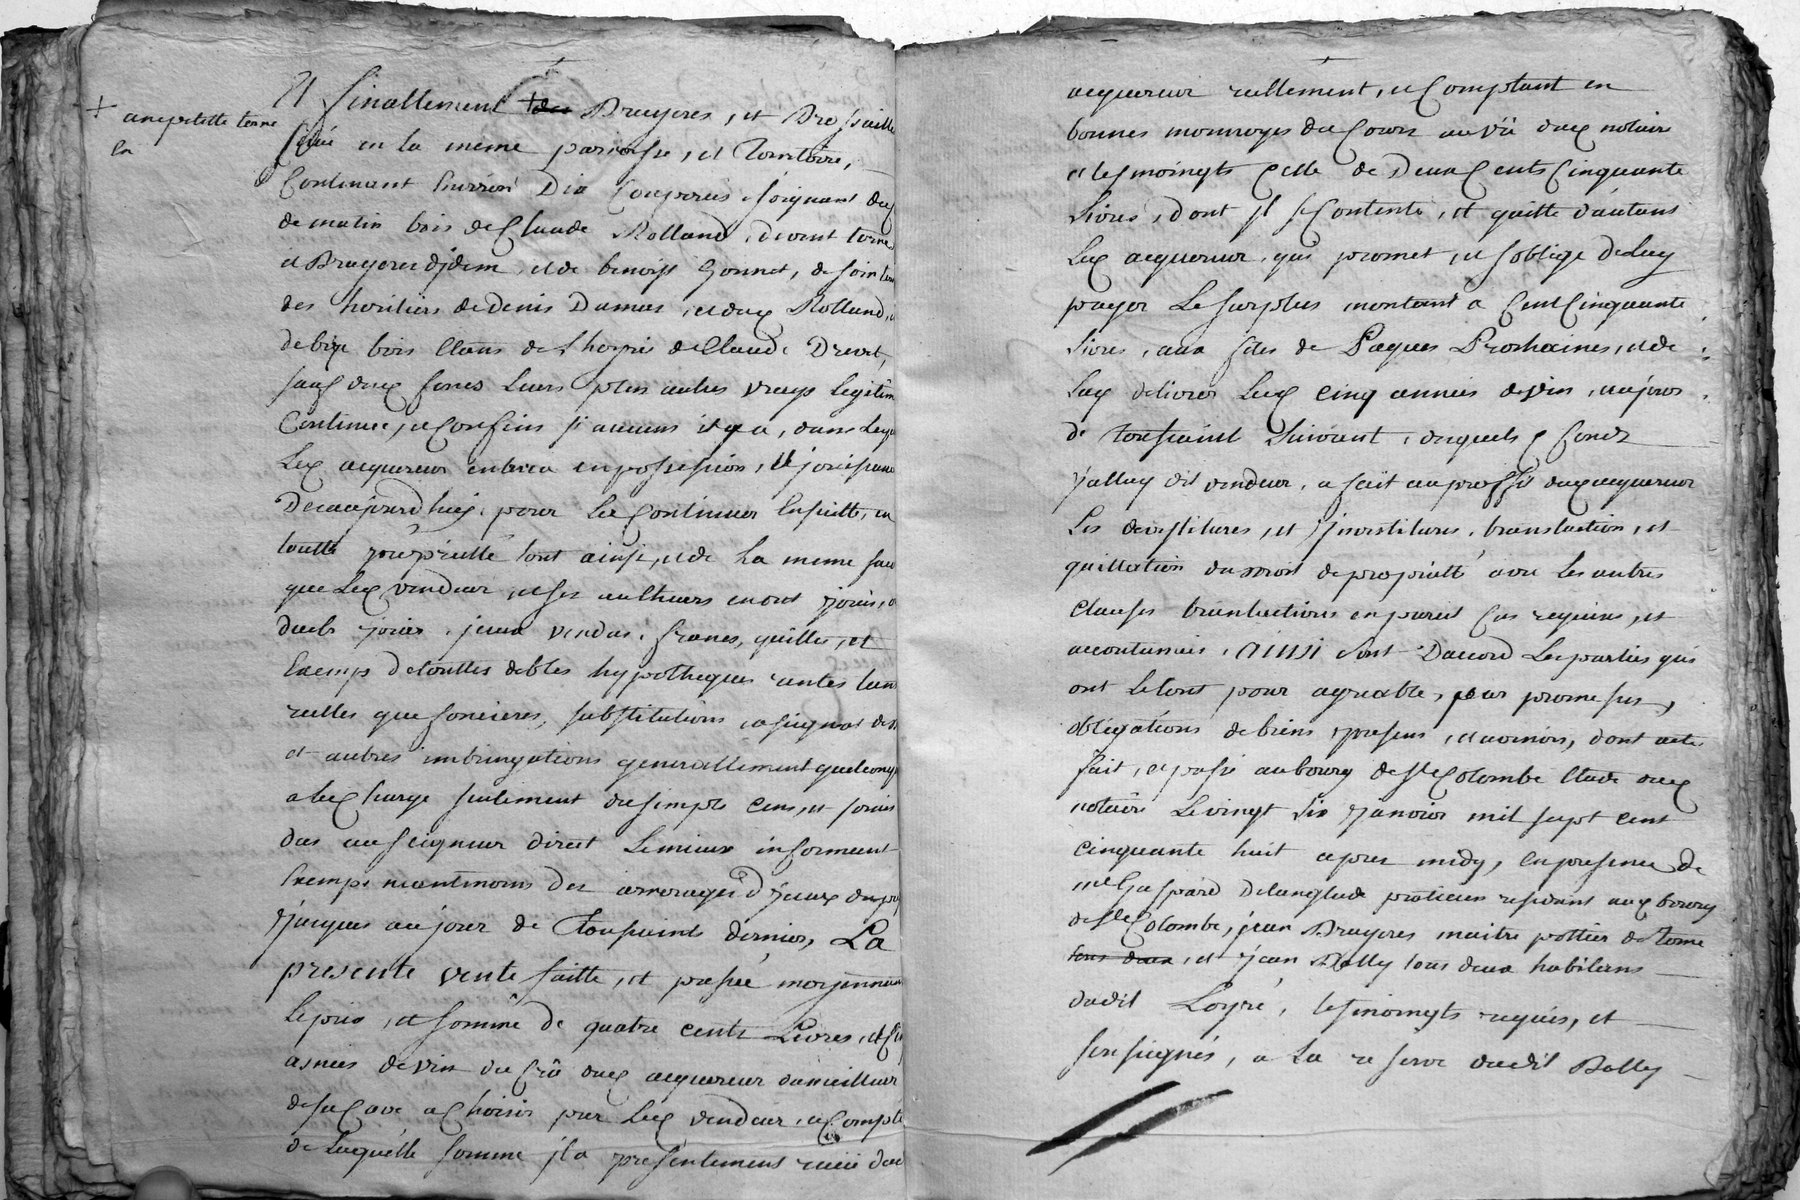 + une petitte terre
en
Et finallement + des Bruyeres, et Brossaille
scitué en la même paroisse, et Territoire,
Contenant environ Dix Couperées, joignant de
de matin bois de Claude Rolland, divent terre
et Bruyeres d'jdem, et de benoist Gonnet, de soir terre
des heritiers de Denis Dumas, et dud Rolland, et
de bize bois Clans de L'hoirie de Claude Drevet,
sauf aux fonds leurs plus autres vrays legitim
Continue, et Confins si aucuns il y a, dans Les
Led acquereur entrera en possession, et joüissance
de cejourd'huy, pour Le Continuer Ensuitte, en
toutte proprietté tout ainsy, et de La meme fac
que Led vendeur, et ses autheurs en ont joüis, o
deub joüir, jceux vendus, francs, quittes, et
Exemps de touttes debtes hypotheques rentes tan
reelles que foncieres, substitutions, assignat
et autres imbringations generallement quelconq
a la Charge seulement du simple Cens, et servis
dus au seigneur direct Le mieux informeent
Exemps neantmoins des arrerages d'jceux du
jusques au jour de Toussaints dernier, La
presente vente faitte, et passée moyennan
Le prix, et somme de quatre cents Livres, et Cinq
asnées de vin du Crû dud acquereur du meilleur
de sa Cave a Choisir par Led vendeur, a Compte
de Laquelle somme jl a presentement reçu dud
acquereur reellement, et Comptant en
bonnes monnoyes du Cours au vû dud notaire
et tesmoingts Celle de Deux Cents Cinquante
Livres, dont jl se Contente, et quitte d'autant
Led acquereur, qui promet, et s'oblige de Luy
payer Le surplus montant a Cent Cinquante
Livres, aux fêtes de Paques Prochaines, et de
Luy delivrer Lesd cinq annees de vin, au jour
de Toussaint suivant, desquels d fonds
jcelluy dit vendeur, a fait au proffit dud acquereur
Les devestitures, et jnvestitures, translaction, et
quittation du droit de proprietté avec Les autres
clauses translactives en pareil Cas requises, et
accoutumées, AINSI sont D'accord Les parties qui
ont Le tout pour agreable, par promesses,
obligations de biens, presens, et avenir, dont acte
fait, et passé au bourg de ste Colombe Etude dud
notaire Le vingt six Janvier mil sept cent
cinquante huit apres midy, En presence de
me Gaspard Delanglade praticien residant aud bourg
de ste Colombe, jean Bruyeres maitre pottier de terre
tous deux, et jean Bally tous deux habitans
dudit Loyre, tesmoingts requis, et
soussignés, a La reserve dudit Bally